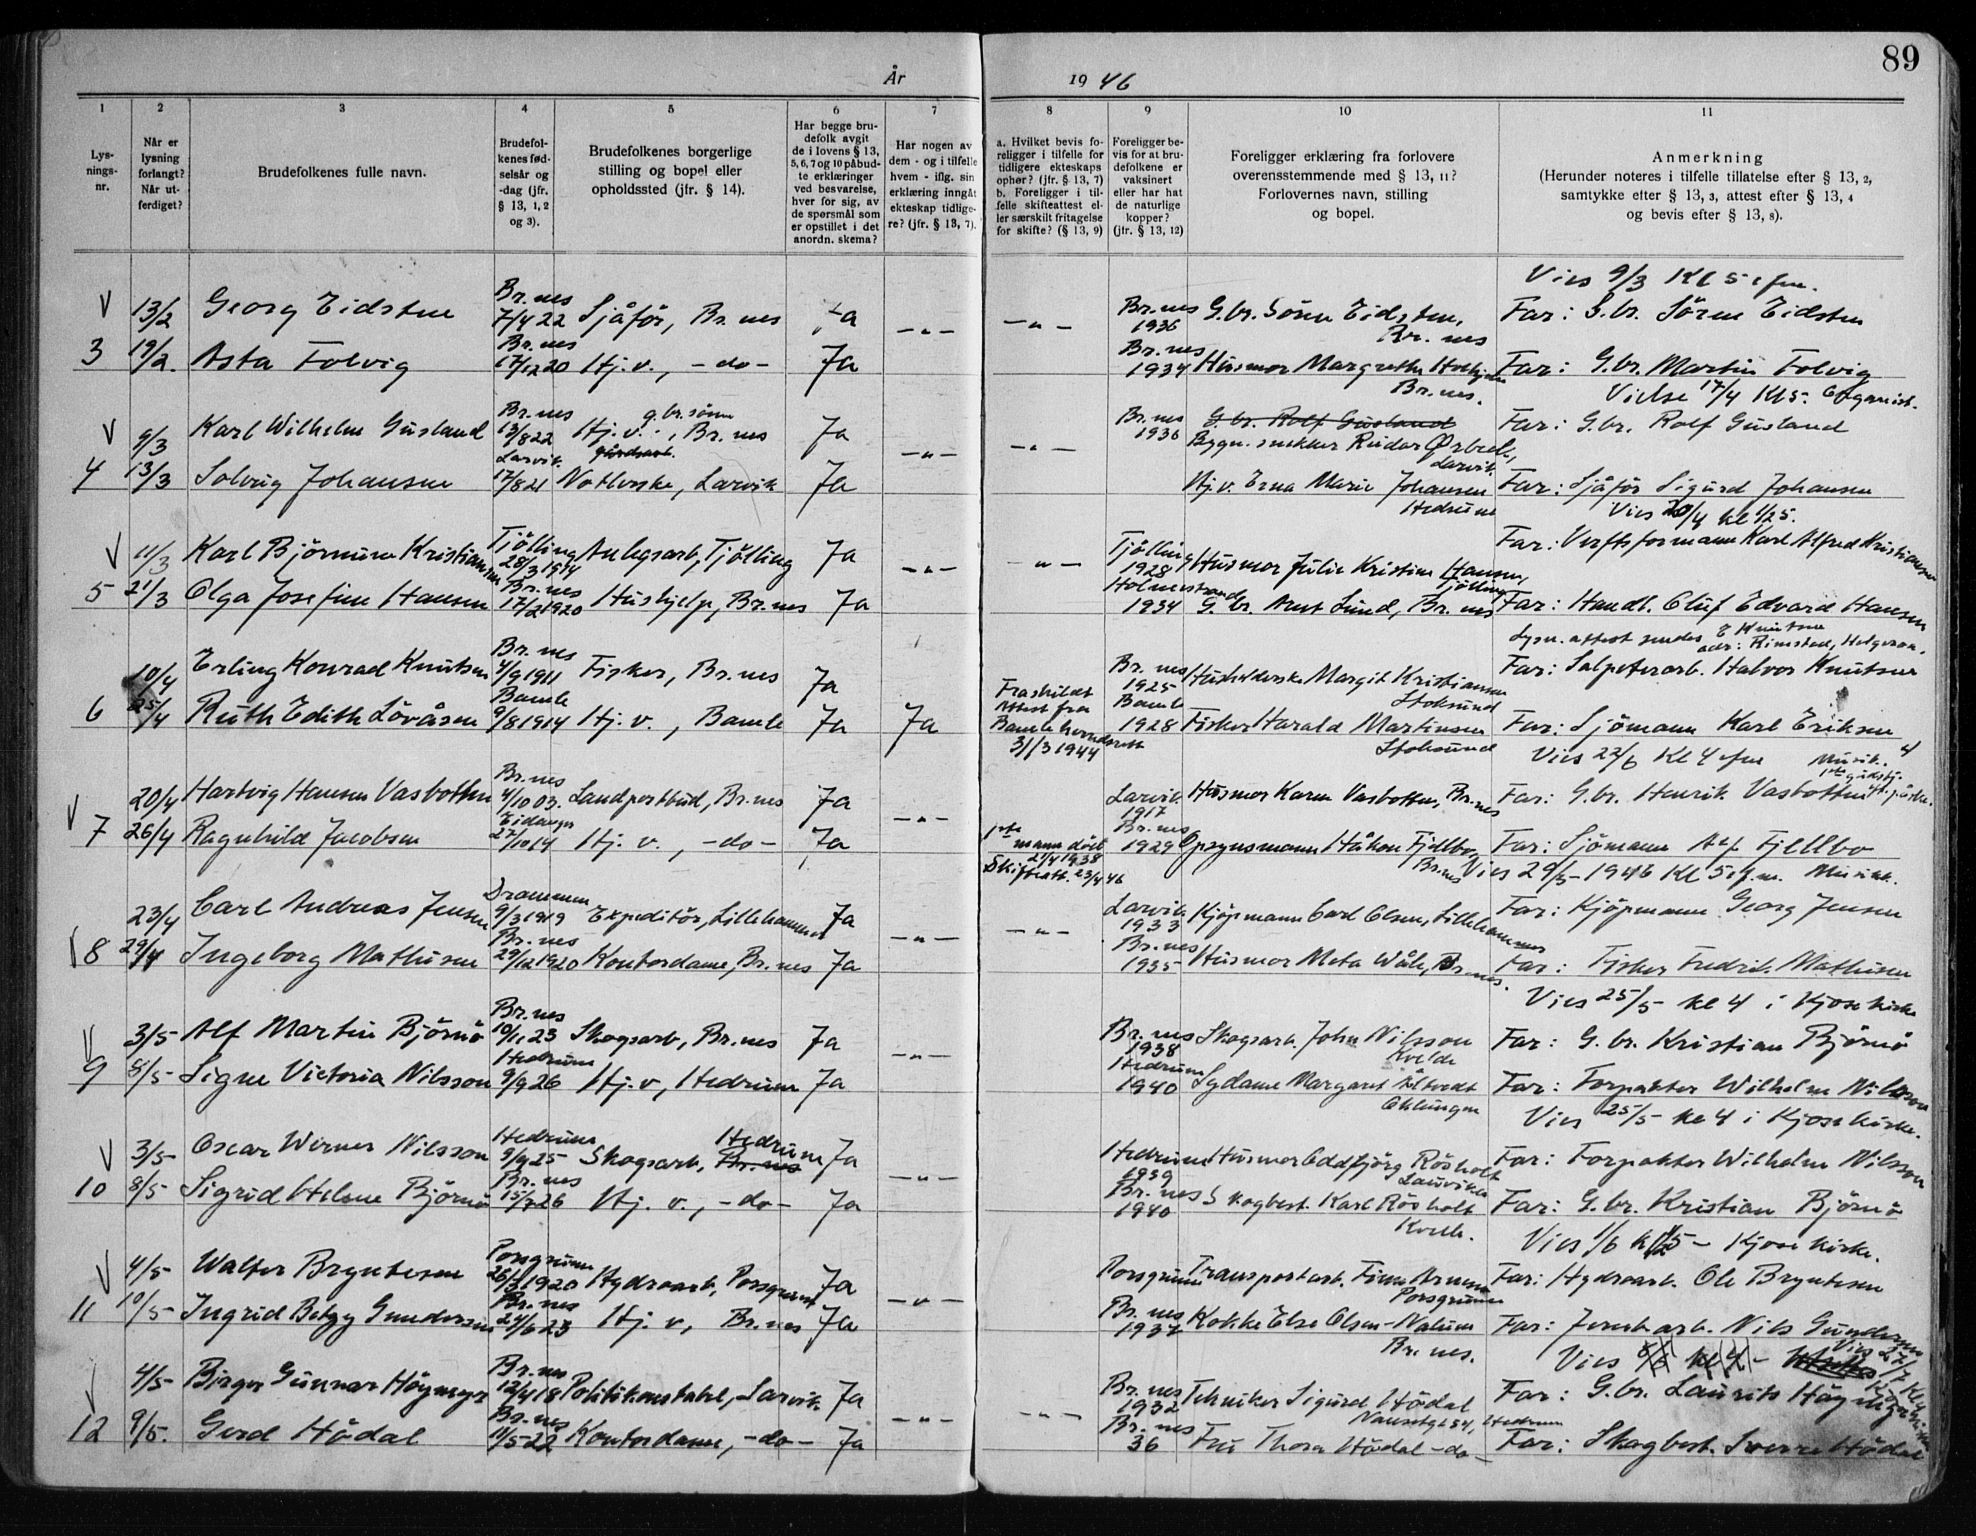 89
År 1946
1 2 3 4 5 6 7 8 9 10 11
Lys-
nings-
nr.
Når er
lysning
forlangt?
Når ut-
ferdiget?
Brudefolkenes fulle navn.
Brudefol-
kenes fød-
selsår og
-dag (jfr.
§ 13, 1, 2
og 3).
Brudefolkenes borgerlige
stilling og bopel eller
opholdssted (jfr. § 14).
Har begge bru-
defolk avgit
de i lovens § 13,
5, 6, 7 og 10 påbud-
te erklæringer
ved besvarelse,
hver for sig, av
de spørsmål som
er opstillet i det
anordn. skema?
Har nogen av
dem - og i tilfelle
hvem - iflg. sin
erklæring inngåt
ekteskap tidlige-
re? (jfr. § 13, 7).
a. Hvilket bevis fo-
religger i tilfelle for
tidligere ekteskaps
ophør? (jfr. § 13, 7)
b. Foreligger i til-
felle skifteattest el-
ler særskilt fritagelse
for skifte? (§ 13, 9)
Foreligger be-
vis for at bru-
defolkene er
vaksinert
eller har hat
de naturlige
kopper?
(jfr. § 13, 12)
Foreligger erklæring fra forlovere
overensstemmende med § 13, 11?
Forlovernes navn, stilling
og bopel.
Anmerkning
(Herunder noteres i tilfelle tillatelse efter § 13, 2,
samtykke efter § 13, 3, attest efter § 13, 4
og bevis efter § 13, 8).
Vies 9/3 Kl 5 efm.
13/2 Georg Eidsten Br.nes 7/4 22 Sjåför, Br.nes Ja -"- -"- Br.nes 1936 G.br. Sönn Eidsten, Br.nes Far: G.br. Sören Eidsten
3 19/2. Asta Folvig Br.nes 17/12 20 Hj.v., -do- Ja Br.nes 1934 Husmor Margrethe Br.nes. Far: G.br. Martin Folvig
Vielse 17/4 Kl 5. Organist.
9/3 Karl Wilhelm Gusland Br.nes 13/8 22 g.br.sönn, Br.nes Ja -"- -"- Br.nes 1936 G.br. Rolf Gusland Bygn. snekker Reidar Ørbeck, Larvik. Far: G.br. Rolf Gusland
4 13/3 Solveig Johansen Larvik 17/8 21 Larvik Ja Hj.v. Erna Marie Johansen Hedrum Far: Sjåför Sigurd Johansen
Vies 20/4 kl 1/2 5.
11/3 Karl Björnum Kristiansen Tjölling 28/3 1914 Anlegsarb, Tjölling Ja -"- -"- Tjölling 1928 Husmor Julie Kristine Hansen, Tjölling Far: Verftsformann Karl Alfred Kristiansen
5 21/3 Olga Josefine Hansen Br.nes 17/2 1920 Hushjelp, Br.nes Ja Holmestrand 1934 G.br. Arnt Lund, Br.nes Far: Handl. Oluf Edvard Hansen
Lysn. attest sendes E Knutsen
adr: Rimstad, Helgeroa.
10/4 Erling Konrad Knutsen Br.nes 4/9 1911 Fisker, Br.nes Ja Br.nes 1925 Margit Kristiansen Stoksund Far: Salpeterarb. Halvor Knutsen
6 25/4 Ruth Edith Lövåsen Bamle 9/8 1914 Hj.v., Bamle Ja Ja Fraskildt Attest fra Bamle herredsrett 31/3 1944 Bamle 1928 Fisker Harald Martinsen Stoksund Far: Sjömann Karl Eriksen
Vies 22/6 Kl 4 efm Musik.
20/4 Hartvig Hansen Vasbotten Br.nes 4/10 03. Landpostbud, Br.nes Ja -"- Larvik 1917 Husmor Karen Vasbotten, Br.nes Far: G.br. Henrik Vasbotten
7 26/4 Ragnhild Jacobsen Eidanger 27/10 14 Hj.v., -do- Ja 1ste mann död 21/4 1938 Skifteatt. 23/4 46 Br.nes 1929 Opsynsmann Håkon Fjellbo, Br.nes Far: Sjömann Alf Fjellbo
Vies 29/5-1946 Kl 5 efm. Musikk.
23/4 Carl Andreas Jensen Drammen 9/3 1919 Expeditör, Lillehammer Ja -"- -"- Larvik 1933 Kjöpmann Carl Olsen, Lillehammer Far: Kjöpmann Georg Jensen
8 29/4 Ingeborg Mathisen Br.nes 29/12 1920 Kontordame, Br.nes Ja Br.nes 1935 Husmor Meta Wåle, Br.nes. Far: Fisker Fredrik Mathisen
Vies 25/5 kl 4 i Kjose kirke
3/5 Alf Martin Björnö Br.nes 10/1 23 Skogsarb, Br.nes Ja -"- Br.nes 1938 Skogsarb. John Nilsson Kvelde Far: G.br. Kristian Björnö
9 8/5 Signe Victoria Nilsson Hedrum 9/9 26 Hj.v, Hedrum Ja Hedrum 1940 Sydame Margaret Oklungen Far: Forpakter Wilhelm Nilsson
Vies 25/5 kl 4 i Kjose kirke.
3/5 Oscar Werner Nilsson Hedrum 9/9 25 Skogsarb, Hedrum Br.nes Ja -"- Hedrum 1939 Husmor Oddbjörg Rösholt Far: Forpakter Wilhelm Nilsson
10 8/5 Sigrid Helene Björnö Br.nes 15/7 26 Hj.v., -do- Ja Br.nes 1940 Skogbest. Karl Rösholt Kvelde. Far: G.br. Kristian Björnö
Vies 1/6 kl 5 - Kjose kirke.
4/5 Walter Bryntesen Porsgrunn 26/3 1920 Hydroarb, Porsgrunn Ja -"- Porsgrunn Transportarb. Finn Arnesen Porsgrunn Far: Hydroarb. Ole Bryntesen
11 10/5 Ingrid Betzy Gundersen Br.nes 24/6 23 Hj.v, Br.nes Ja Br.nes 1937 Kokke Else Olsen-Nalum Br.nes. Far: Jernbarb. Nils Gundersen
Vies kl 4 - Vies 27/7
4/5 Birger Gunnar Höymyr Br.nes 12/4 18 Politikonstabel, Larvik Ja -"- -"- Br.nes 1932 Tekniker Sigurd Hödal Hedrum Far: G.br. Laurits Höymyr
12 9/5. Gerd Hödal Br.nes 11/5-22 Kontordame, -do- Ja Br.nes 36 Fru Thora Hödal -do- Far: Skogbest. Sverre Hödal